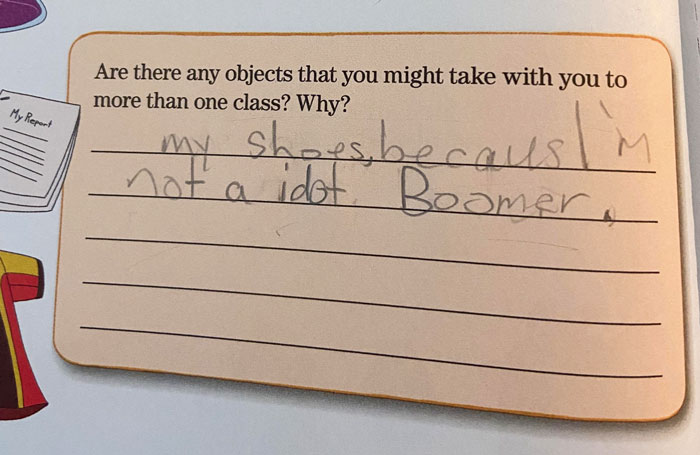 Are there any objects that you might take with you to
more than one class? Why?
My Report
my shoes, becaus I'm
not a idot. Boomer.